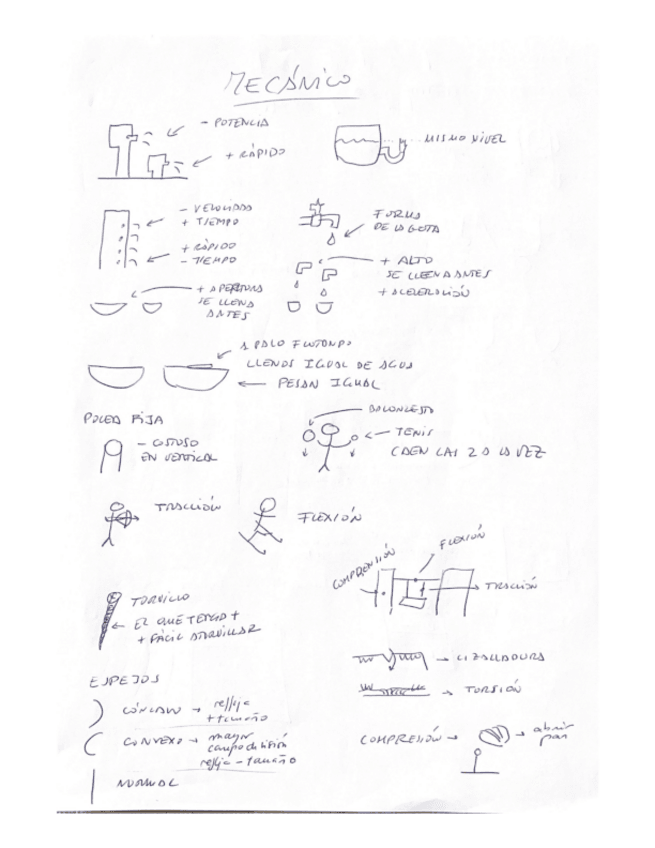 MECÁNICO
- POTENCIA
+ RÁPIDO
MISMO NIVEL
- VELOCIDAD
+ TIEMPO
+ RÁPIDO
- TIEMPO
FORMA
DE LA GOTA
+ APERTURA
SE LLENA
ANTES
+ ALTO
SE LLENA ANTES
+ ACELERACIÓN
PALO FLOTANDO
LLENOS IGUAL DE AGUA
PESAN IGUAL
POLEA FIJA
- COSTOSO
EN VERTICAL
BALONCESTO
TENIS
CAEN LAS 2 A LA VEZ
TRACCIÓN
FLEXIÓN
COMPRENSIÓN
FLEXIÓN
TRACIÓN
TORNILLO
EL QUE TENGA +
+ FÁCIL ATORNILLAR
CIZALLADURA
TORSIÓN
ESPEJOS
CÓNCAVO → refleja
+ tamaño
CONVEXO → mayor
campo de visión
refleja - tamaño
NORMAL
COMPRESIÓN → → abrir
pan